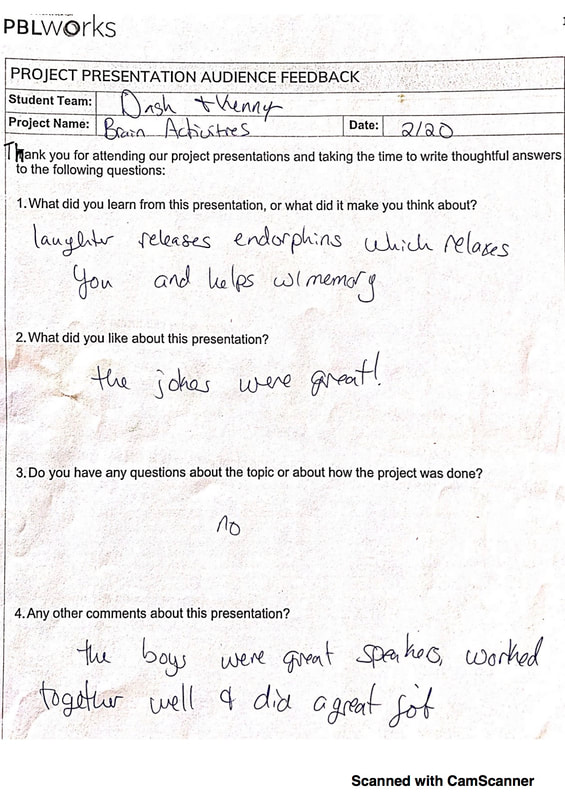 PBLWorks
PROJECT PRESENTATION AUDIENCE FEEDBACK
Student Team: Dash + Kenny
Project Name: Brain Activities Date: 2/20
Thank you for attending our project presentations and taking the time to write thoughtful answers
to the following questions:
1. What did you learn from this presentation, or what did it make you think about?
laughter releases endorphins which relaxes
you and helps w/ memory
2. What did you like about this presentation?
the jokes were great!
3. Do you have any questions about the topic or about how the project was done?
no
4. Any other comments about this presentation?
the boys were great speakers, worked
together well & did a great job
Scanned with CamScanner